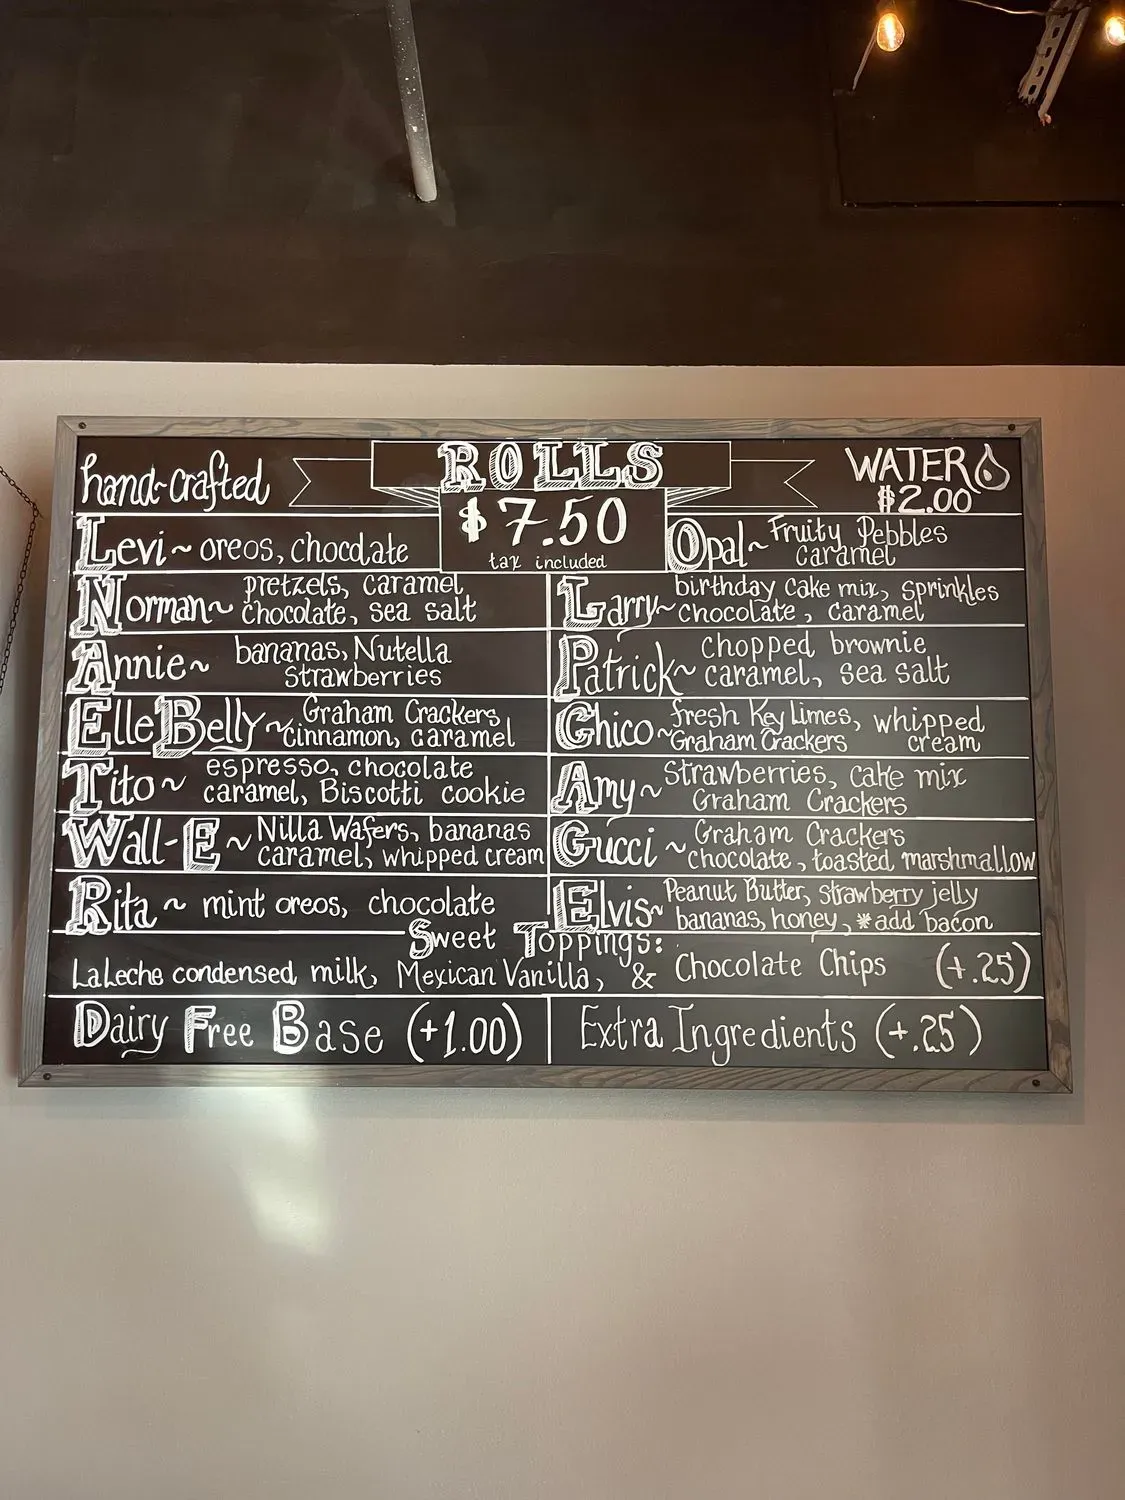 hand-crafted
ROLLS
$7.50
tax included
WATER
$2.00
Levi ~ oreos, chocolate
Norman ~ pretzels, caramel
chocolate, sea salt
Annie ~ bananas, Nutella
strawberries
Elle Belly ~ Graham Crackers
cinnamon, caramel
Tito ~ espresso, chocolate
caramel, Biscotti cookie
Wall-E ~ Nilla Wafers, bananas
caramel, whipped cream
Rita ~ mint oreos, chocolate
Opal ~ Fruity Pebbles
caramel
Larry ~ birthday cake mix, sprinkles
chocolate, caramel
Patrick ~ chopped brownie
caramel, sea salt
Chico ~ fresh Key Limes, whipped
Graham Crackers cream
Amy ~ Strawberries, cake mix
Graham Crackers
Gucci ~ Graham Crackers
chocolate, toasted marshmallow
Elvis ~ Peanut Butter, strawberry jelly
bananas, honey, *add bacon
Sweet Toppings:
LaLeche condensed milk, Mexican Vanilla, & Chocolate Chips (+.25)
Dairy Free Base (+1.00)
Extra Ingredients (+.25)